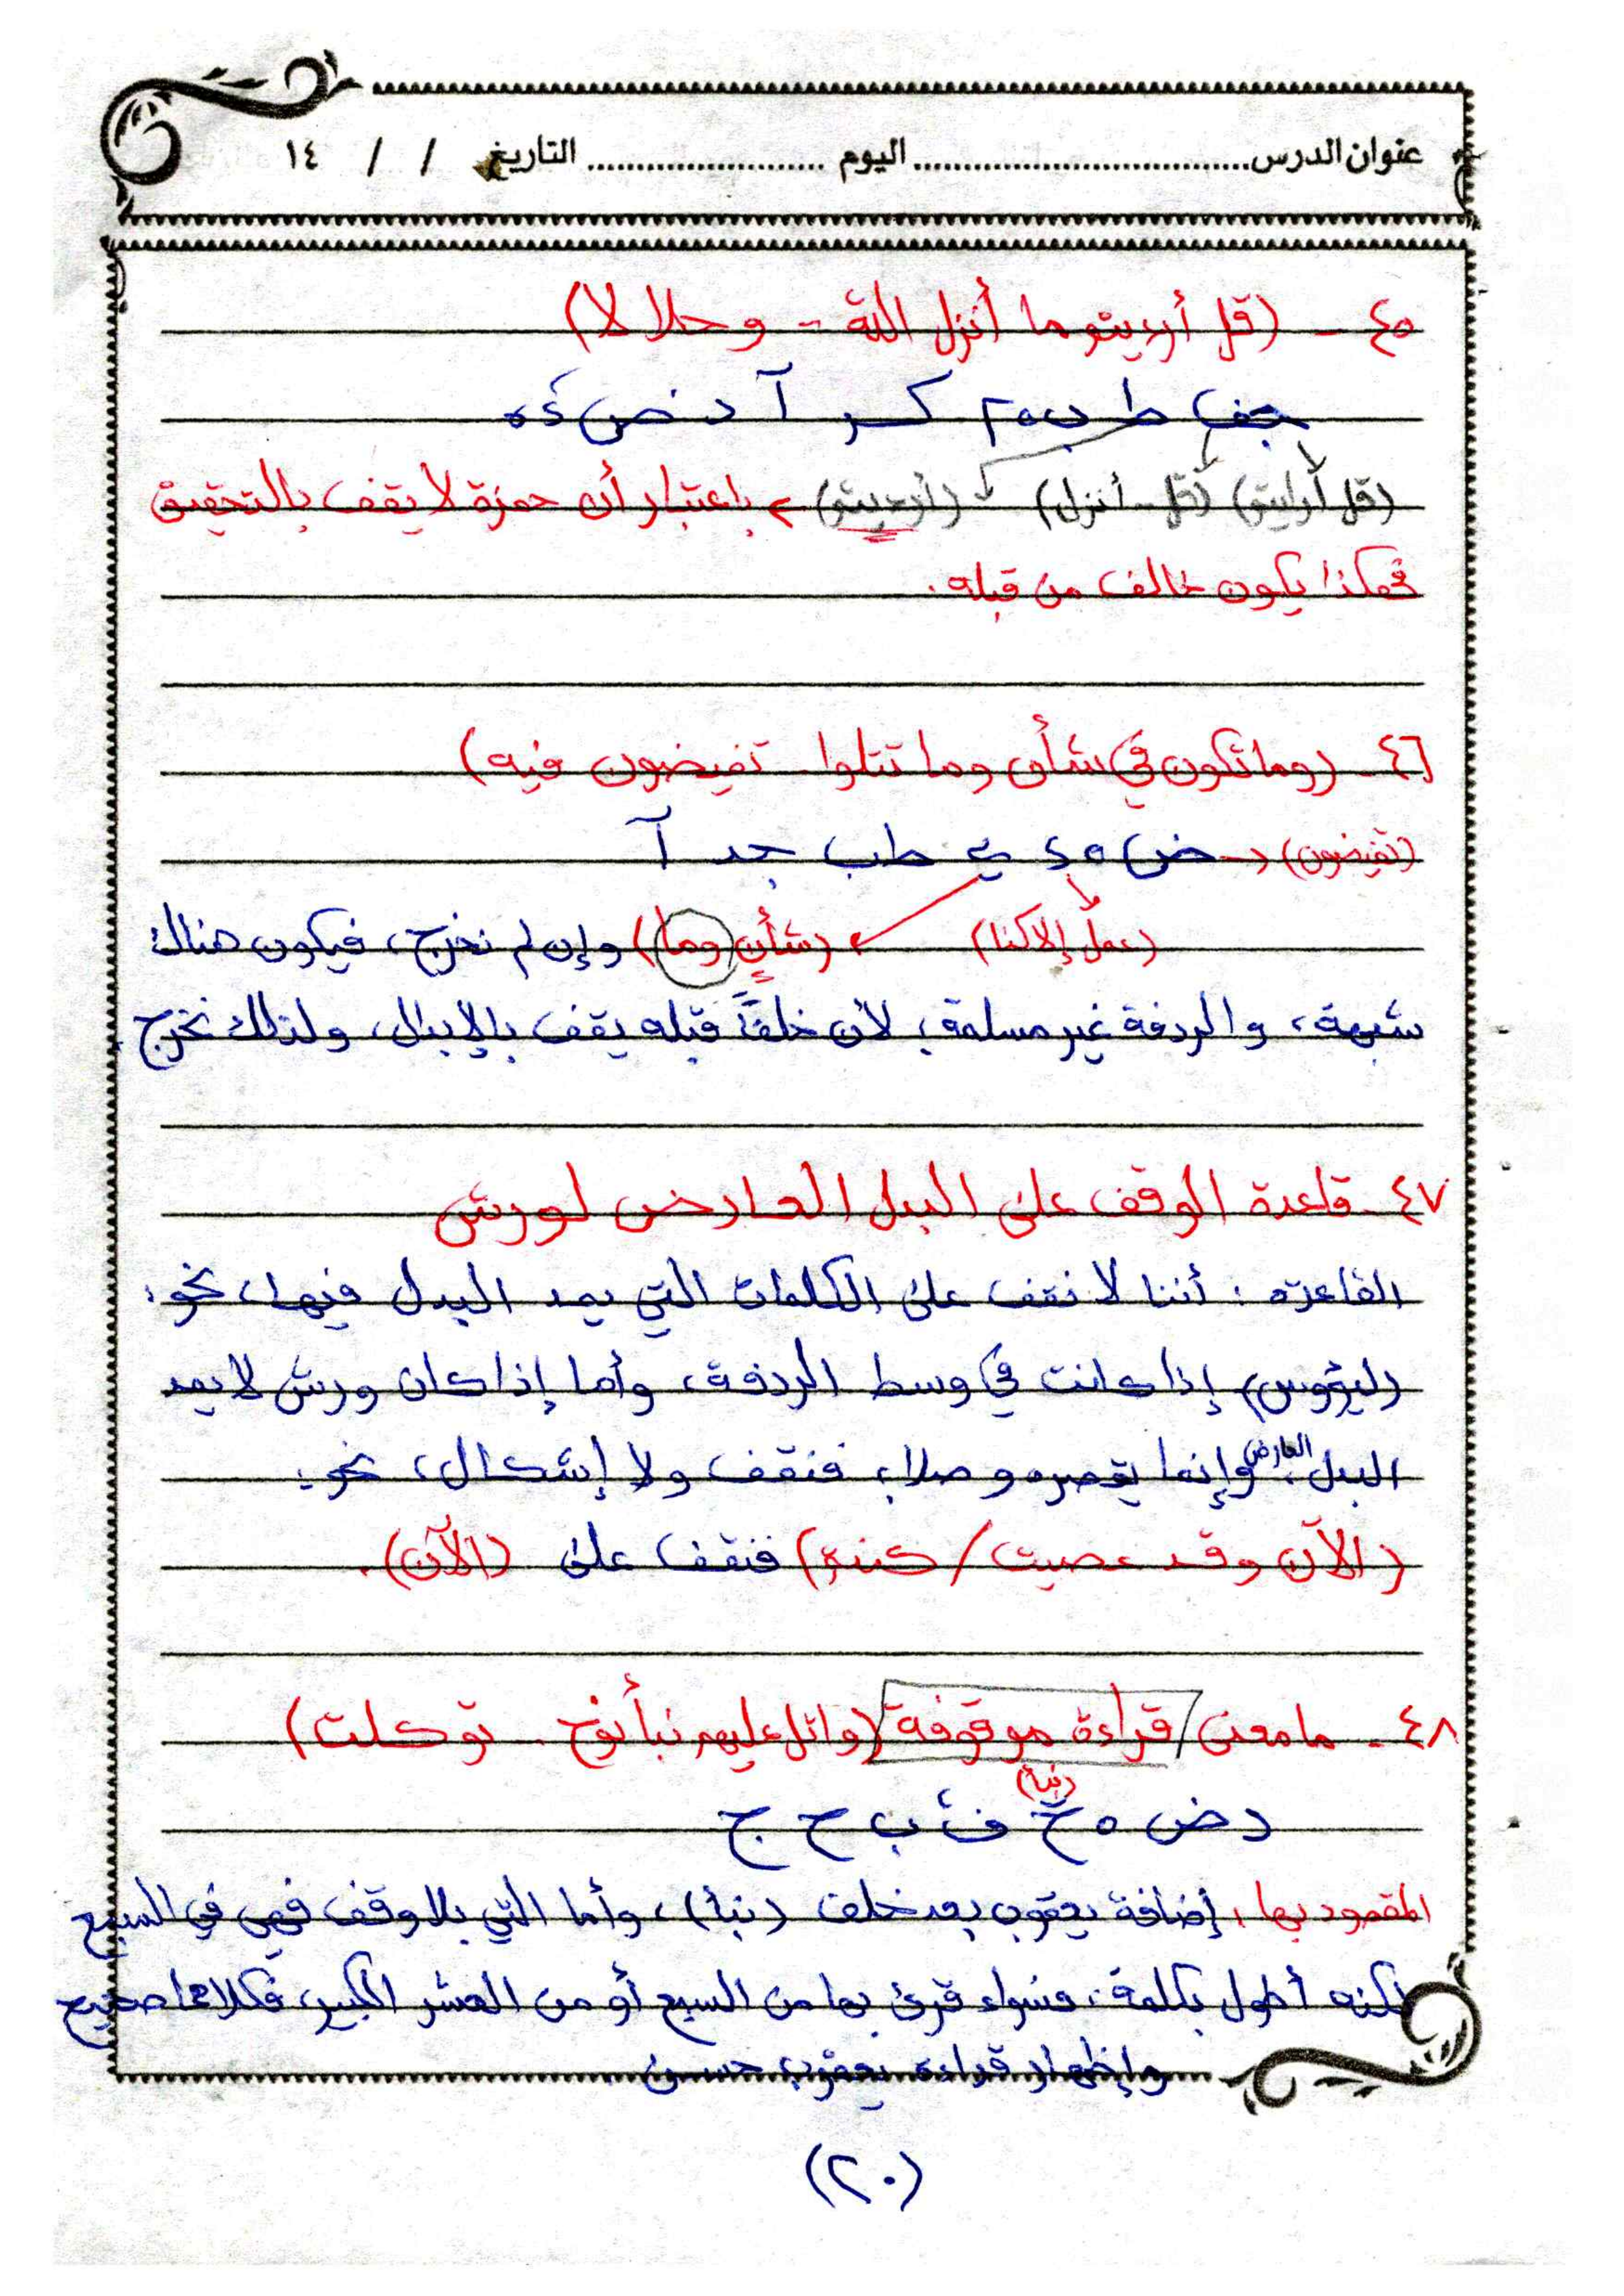 عنوان الدرس.................................. اليوم ........................ التاريخ / / ١٤
٤٥ - (قل أرءيتم ما أنزل الله - وحلالا)
جف ط ب ٢٥ كـ ر آ د ض ٤٥
(قل أرأيتم) (قل - أنزل) (أرءيتم) باعتبار أن حمزة لا يقف بالتحقيق
فهكذا يكون خالف من قبله.
٤٦ - (وما تكون في شأن وما تتلوا - تفيضون فيه)
(تفيضون) ض ٥ ٤ ي طب جد آ
(عملٍ إلا كنا) (شأنٍ وما) وإن لم نخرج، فيكون هناك
شبهة، والردفة غير مسلمة، لأن خلفاً قبله يقف بالإبدال، ولذلك نخرج.
٤٧ - قاعدة الوقف على البدل العارض لورش
القاعدة: أننا لا نقف على الكلمات التي يمد البدل فيها، نحو:
(ليؤوس) إذا كانت في وسط الردفة، وأما إذا كان ورش لا يمد
البدل العارض، وإنما يقصره وصلا، فنقف ولا إشكال، نحو:
(الآن وقد عصيت / كنتم) فنقف على (الآن).
٤٨ - ما معنى قراءة موقوفة (واتل عليهم نبأ نوح - توكلت)
(نبأ)
د ض ٥ خ ف ث ب ح ج
المقصود بها: إضافة يعقوب بعد خلف (نبأ)، وأما التي بلا وقف فهي في السبع
لكنه أطول بكلمة، فسواء قرئ بها من السبع أو من العشر الكبير، فكلاهما صحيح
وإظهار قراءة يعقوب حسن.
(٢٠)